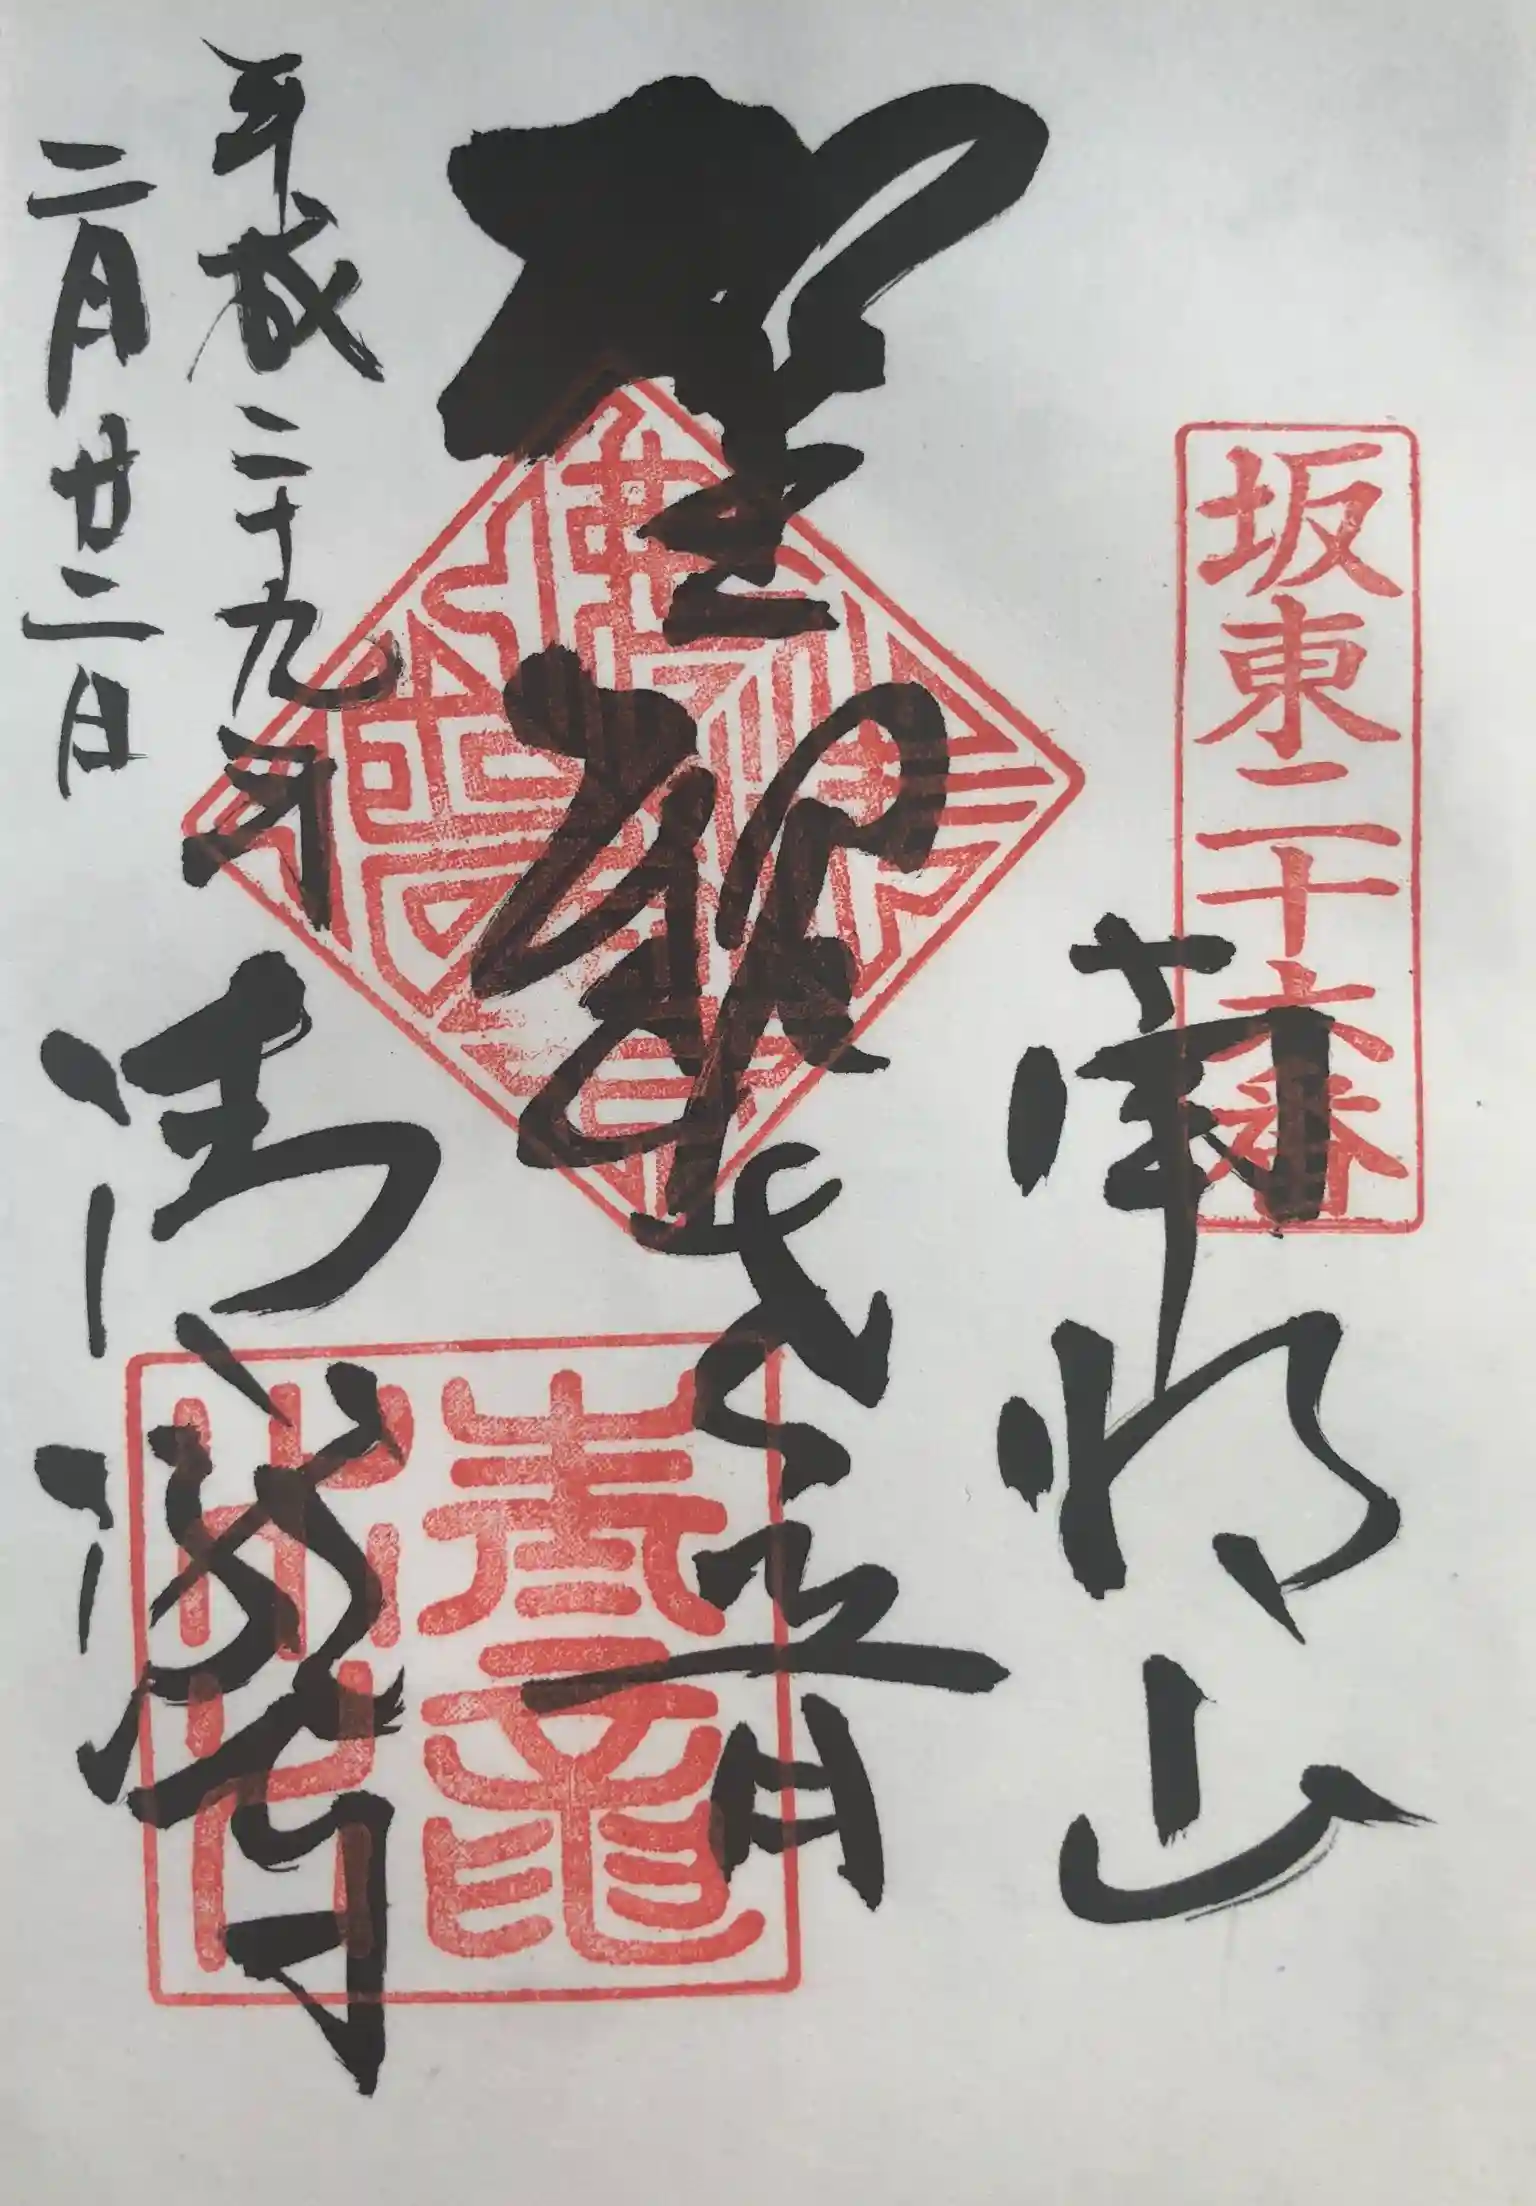 坂東二十六番
南明山
聖観世音
清瀧寺
平成二十九年
二月廿二日